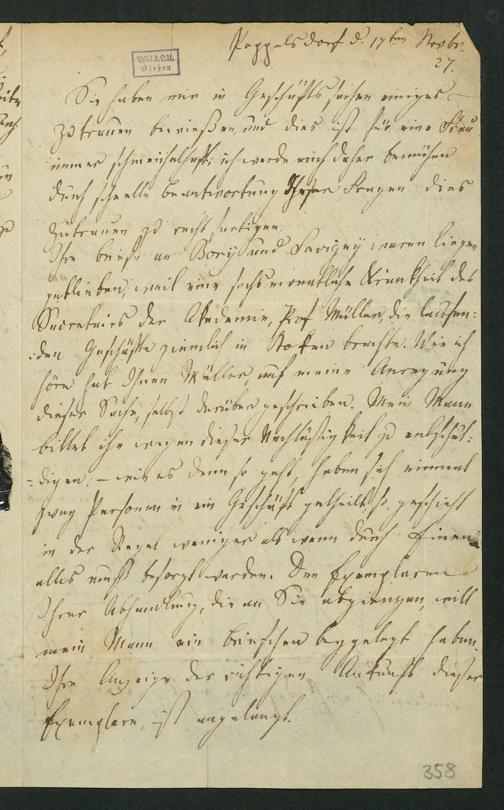 Poppelsdorf d. 17ten Novbr.
27.
Bibl. d. L. U.
Giessen
Sie haben mir in Geschäftssachen einiges
Zutrauen bewiesen, und dies ist für eine Frau
immer schmeichelhaft; ich werde mich daher bemühen
durch schnelle Beantwortung Ihrer Fragen dies
Zutrauen zu rechtfertigen.
Ihre Briefe an Bory und Savigny waren liegen
geblieben, weil eine sechsmonatliche Krankheit des
Secretairs der Akademie, Prof Müller, die laufen:
:den Geschäfte ziemlich in Stocken brachte. Wie ich
höre hat Ihnen Müller, auf meine Anregung
dieser Sache, selbst darüber geschrieben. Mein Mann
bittet ihn wegen dieser Nachlässigkeit zu entschul:
:digen; – wie es denn so geht, haben sich einmal
zwey Personen in ein Geschäft getheilt, so geschieht
in der Regel weniger als wenn durch Einen
alles muß besorgt werden. Den Exemplaren
Ihrer Abhandlung, die an Sie abgiengen, will
mein Mann ein Briefchen beygelegt haben.
Ihre Anzeige der richtigen Ankunft dieser
Exemplare, ist angelangt.
358